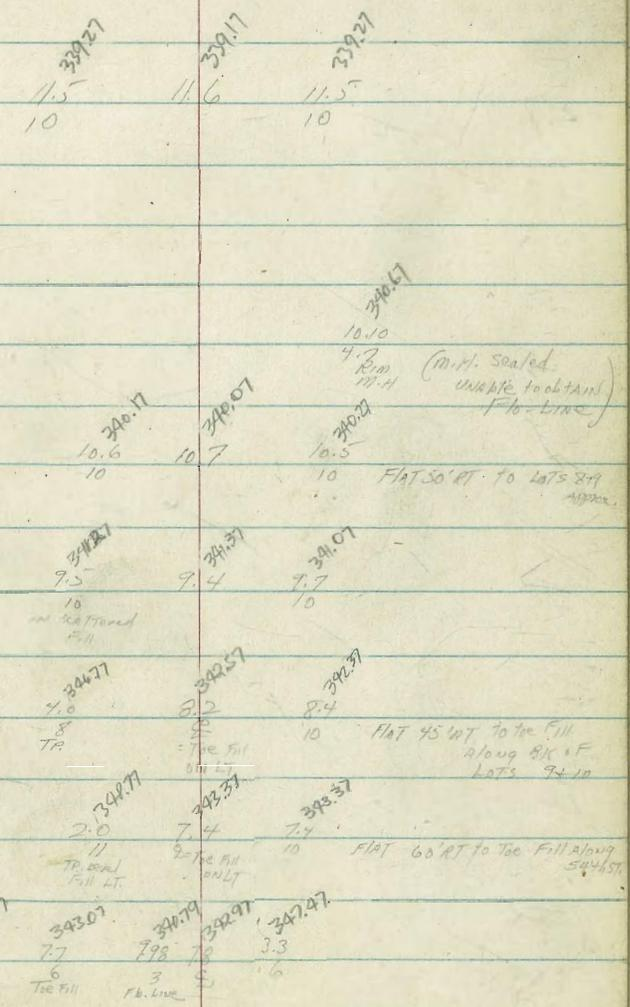 339.27 339.17 339.27
11.5 11.6 11.5
10 10
340.67
10.10
4.7
Rim (M.H. Sealed
M.H UNAble to obtain
Flo-Line)
340.17 340.07 340.27
10.6 10.7 10.5
10 10 FlAT 50' RT. to LOTS 8+9
Approx.
341.37 341.07
9.5 9.4 9.7
10 10
on scattered
Fill
346.77 342.57 342.37
4.0 8.2 8.4
8 10 FlAT 45' RT to toe Fill
TP. = Toe Fill Along BK OF
ON LT LOTS 9+10
348.77 343.37 343.37
2.0 7.4 7.4
11 = Toe Fill 10 FlAT 60' RT to Toe Fill Along
TP. Level ON LT 54th ST.
Fill LT.
343.07 340.79 342.97 347.47
7.7 9.98 7.8 3.3
6 3 6
Toe Fill Fb. Line